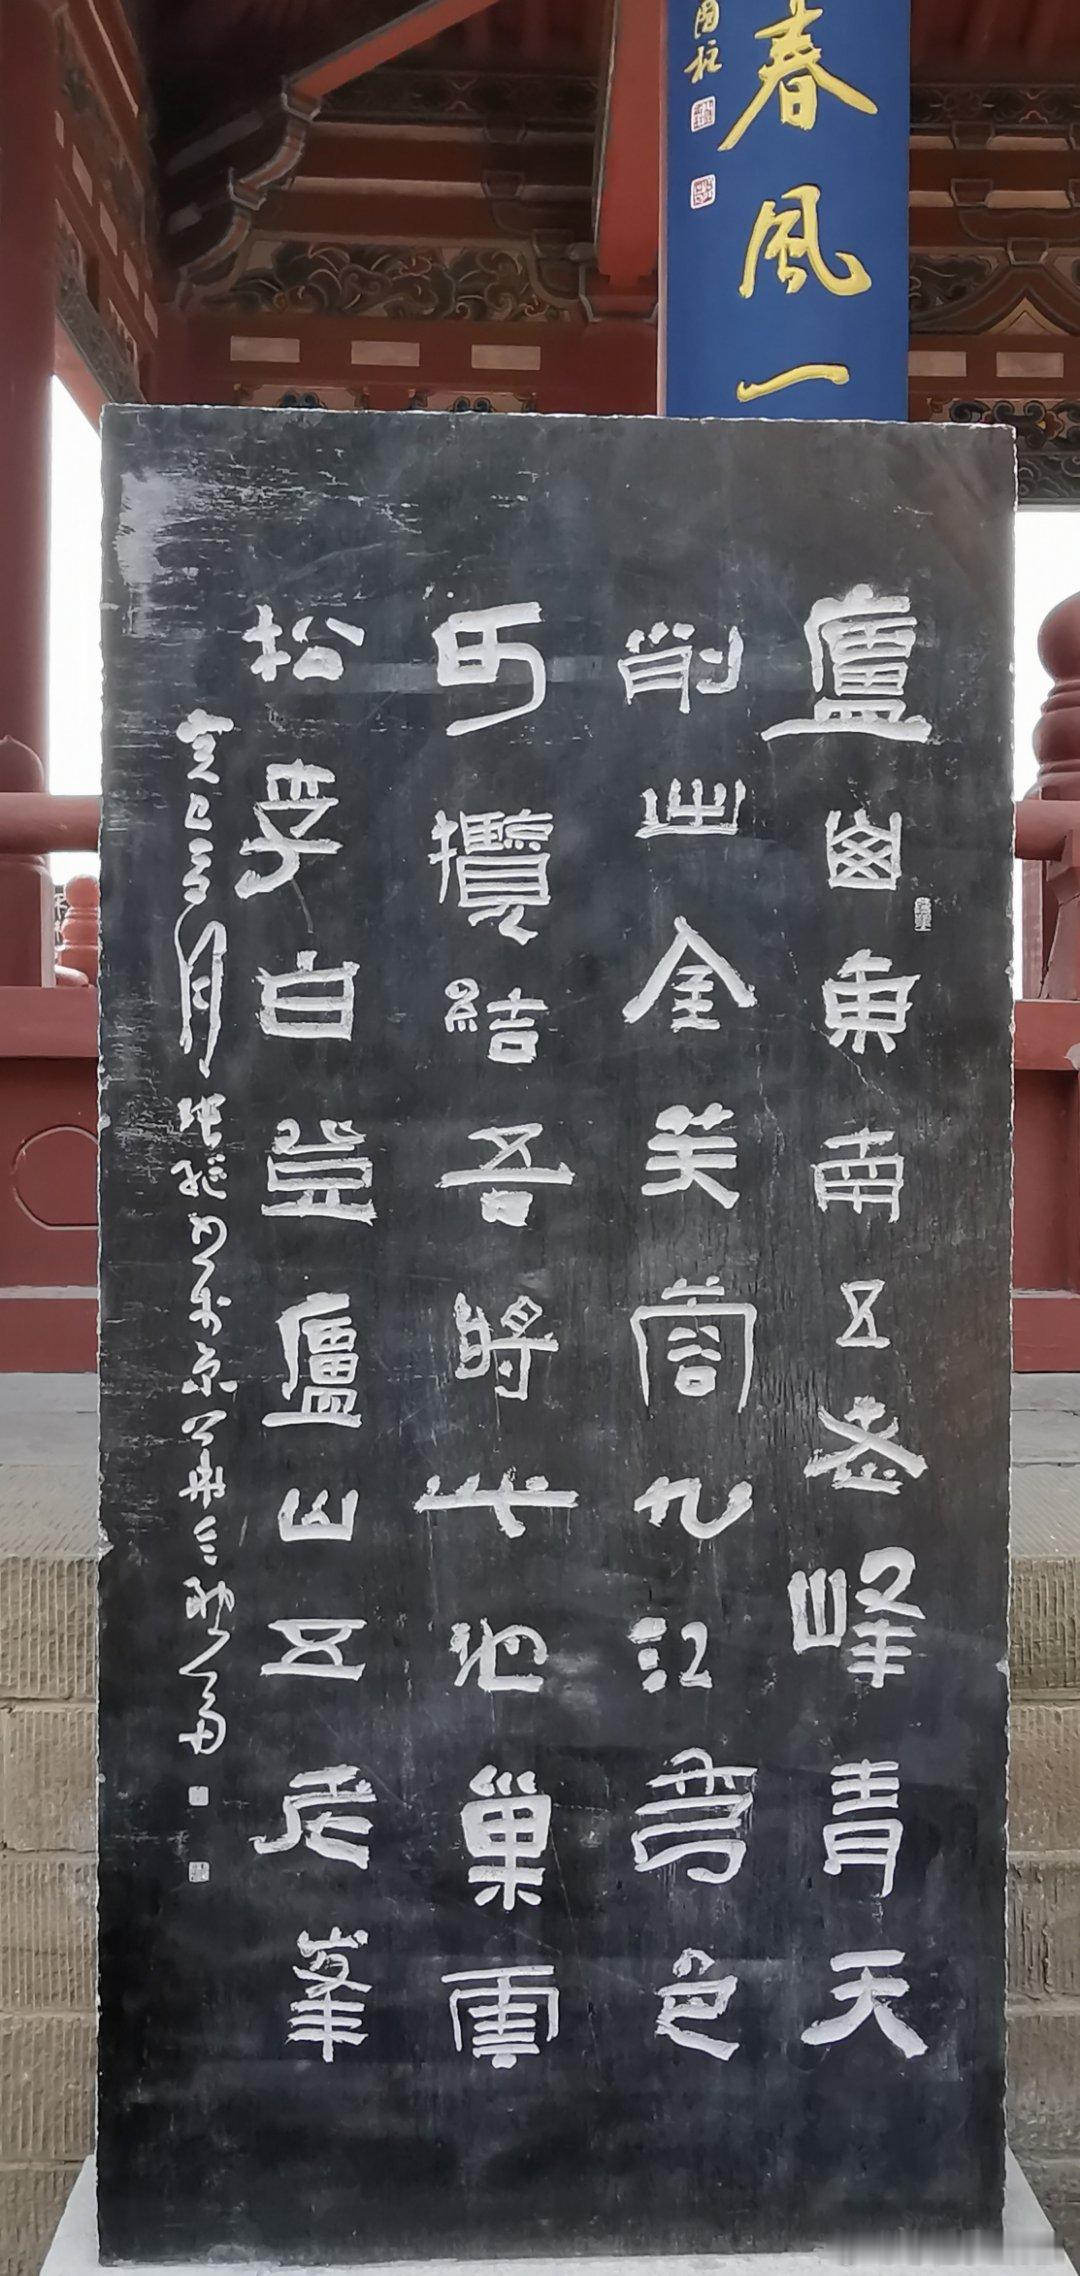 春風一
廬山東南五老峰青天
削出金芙蓉九江秀色
可攬結吾將此地巢雲
松李白登廬山五老峯